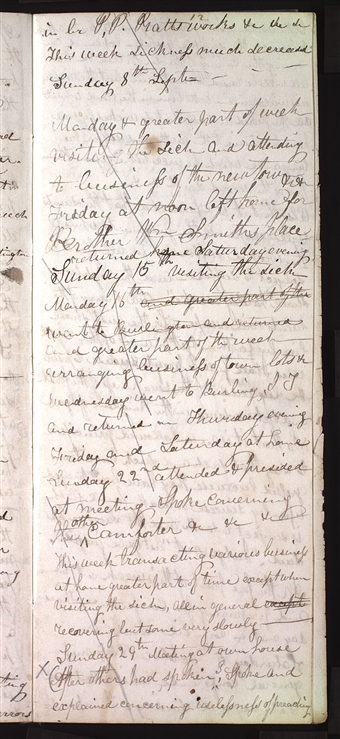 in br P. P. Pratts works &c &c &c
This week Sickness much decreased
Sunday 8th Septr —
Monday & greater part of week
visiting the Sick and attending
to business of the new town &c &c
Friday at noon left home for
Brother Wm Smiths place
returned home Saturday evening
Sunday 15th visiting the sick
Monday 16th and greater part of the
went to Burlington and returned
and greater part of the week
arranging business of town lots &c
Wednesday went to Burling, I T
and returned on Thursday evening
Friday and Saturday at home
Sunday 22nd attended & presided
at meeting Spoke concerning
the other Comforter &c &c &c
This week transacting various business
at home greater part of time except when
visiting the sick, all in general except
recovering but some very slowly —
Sunday 29th Meeting at own house
After others had spoken, Spoke and
explained concerning uselessness of preaching